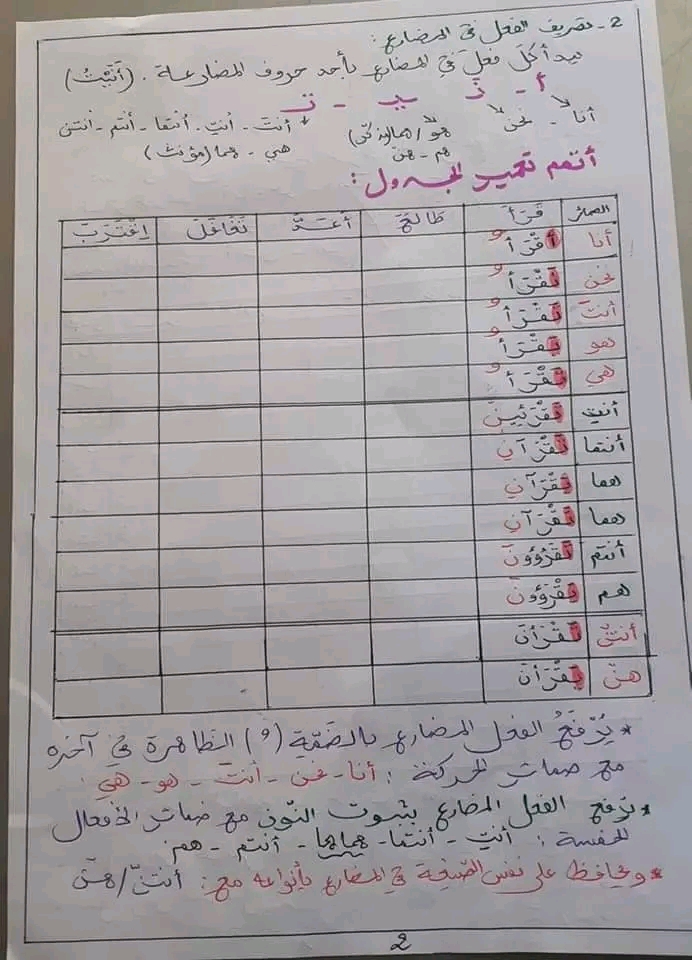 2 - تصريف الفعل في المضارع:
يبدأ كل فعل في المضارع بأحد حروف المضارعة. (أَنَيْتُ)
أ - نـ - يـ - تـ
أنا - نحن هو / هما (مذكر) أنتَ - أنتِ - أنتما - أنتم - أنتنّ
هم - هنّ هي - هما (مؤنث)
أتمم تعمير الجدول:
الضمائر قَرَأَ طَالَعَ أَعَدَّ تَفَاعَلَ اِغْتَرَبَ
أنا أَقْرَأُ
نحن نَقْرَأُ
أنتَ تَقْرَأُ
هو يَقْرَأُ
هي تَقْرَأُ
أنتِ تَقْرَئِينَ
أنتما تَقْرَآنِ
هما يَقْرَآنِ
هما تَقْرَآنِ
أنتم تَقْرَؤُونَ
هم يَقْرَؤُونَ
أنتنّ تَقْرَأْنَ
هنّ يَقْرَأْنَ
* يُرْفَعُ الفعل المضارع بالضمّة (ُ) الظاهرة في آخره
مع ضمائر الحركة : أنا - نحن - أنتَ - هو - هي.
* يرفع الفعل المضارع بثبوت النّون مع ضمائر الأفعال
الخمسة : أنتِ - أنتما - هما هما - أنتم - هم.
* ونحافظ على نفس الصّيغة في المضارع بأنواعه مع: أنتنّ / هنّ
2